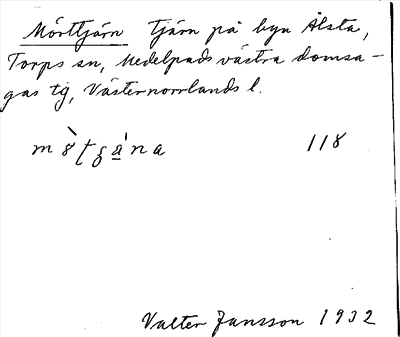 Mörttjärn Tjärn på byn Ålsta,
Torps sn, Medelpads västra domsa-
gas tg, Västernorrlands l.
118
Valter Jansson 1932